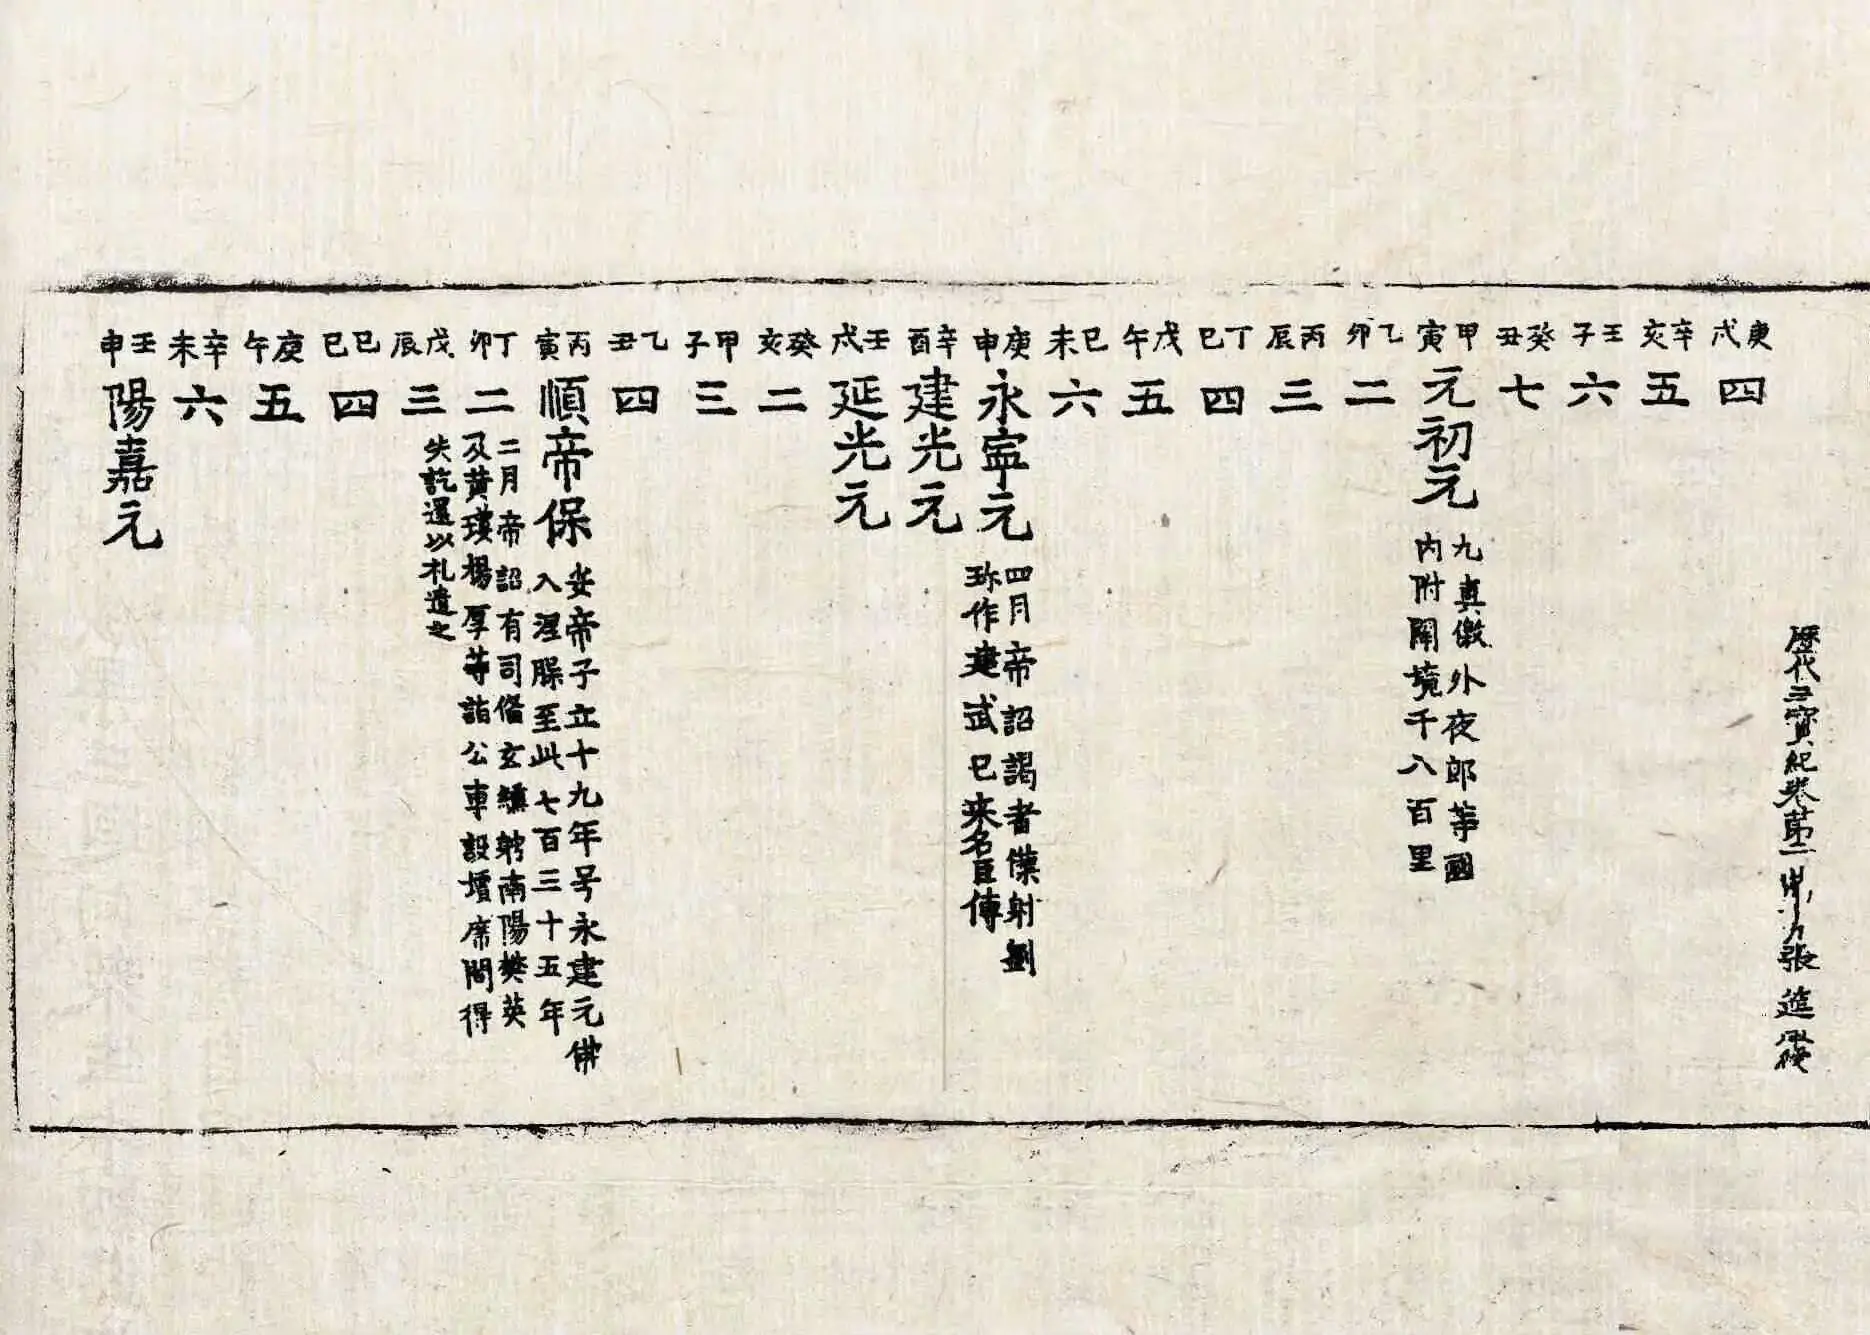 歷代三寶紀卷苐二 張
庚戌 四
辛亥 五
壬子 六
癸丑 七
甲寅 元初元
九真徼外夜郎等國
內附開境千八百里
乙卯 二
丙辰 三
丁巳 四
戊午 五
己未 六
庚申 永寧元
四月帝詔謁者僕射劉
珎作建武已来名臣傳
辛酉 建光元
壬戌 延光元
癸亥 二
甲子 三
乙丑 四
丙寅 順帝保
安帝子立十九年号永建元佛
入涅槃至此七百三十五年
丁卯 二
二月帝詔有司俻玄纁聘南陽樊英
及黄瓊楊厚等詣公車設壇席問得
失訖還以礼遣之
戊辰 三
己巳 四
庚午 五
辛未 六
壬申 陽嘉元